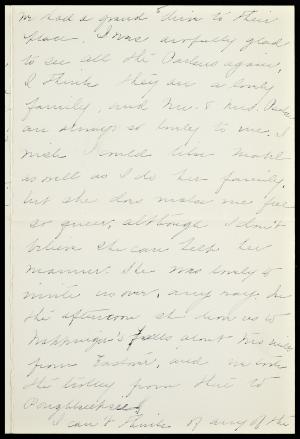 we had a grand time to their
place. I was awfully glad
to see all the Parkers again,
I think they are a lovely
family, and Mr. & Mrs. Parker
are always so lovely to me. I
wish I could like Mabel
as well as I do her family,
but she does make me feel
so queer, although I don't
believe she can help her
manner. She was lovely to
invite us over, any way. In
the afternoon she drove us to
Wappinger's Falls, about two miles
from, and we took
the trolley from there to
Poughkeepsie.
I can't think of any of the